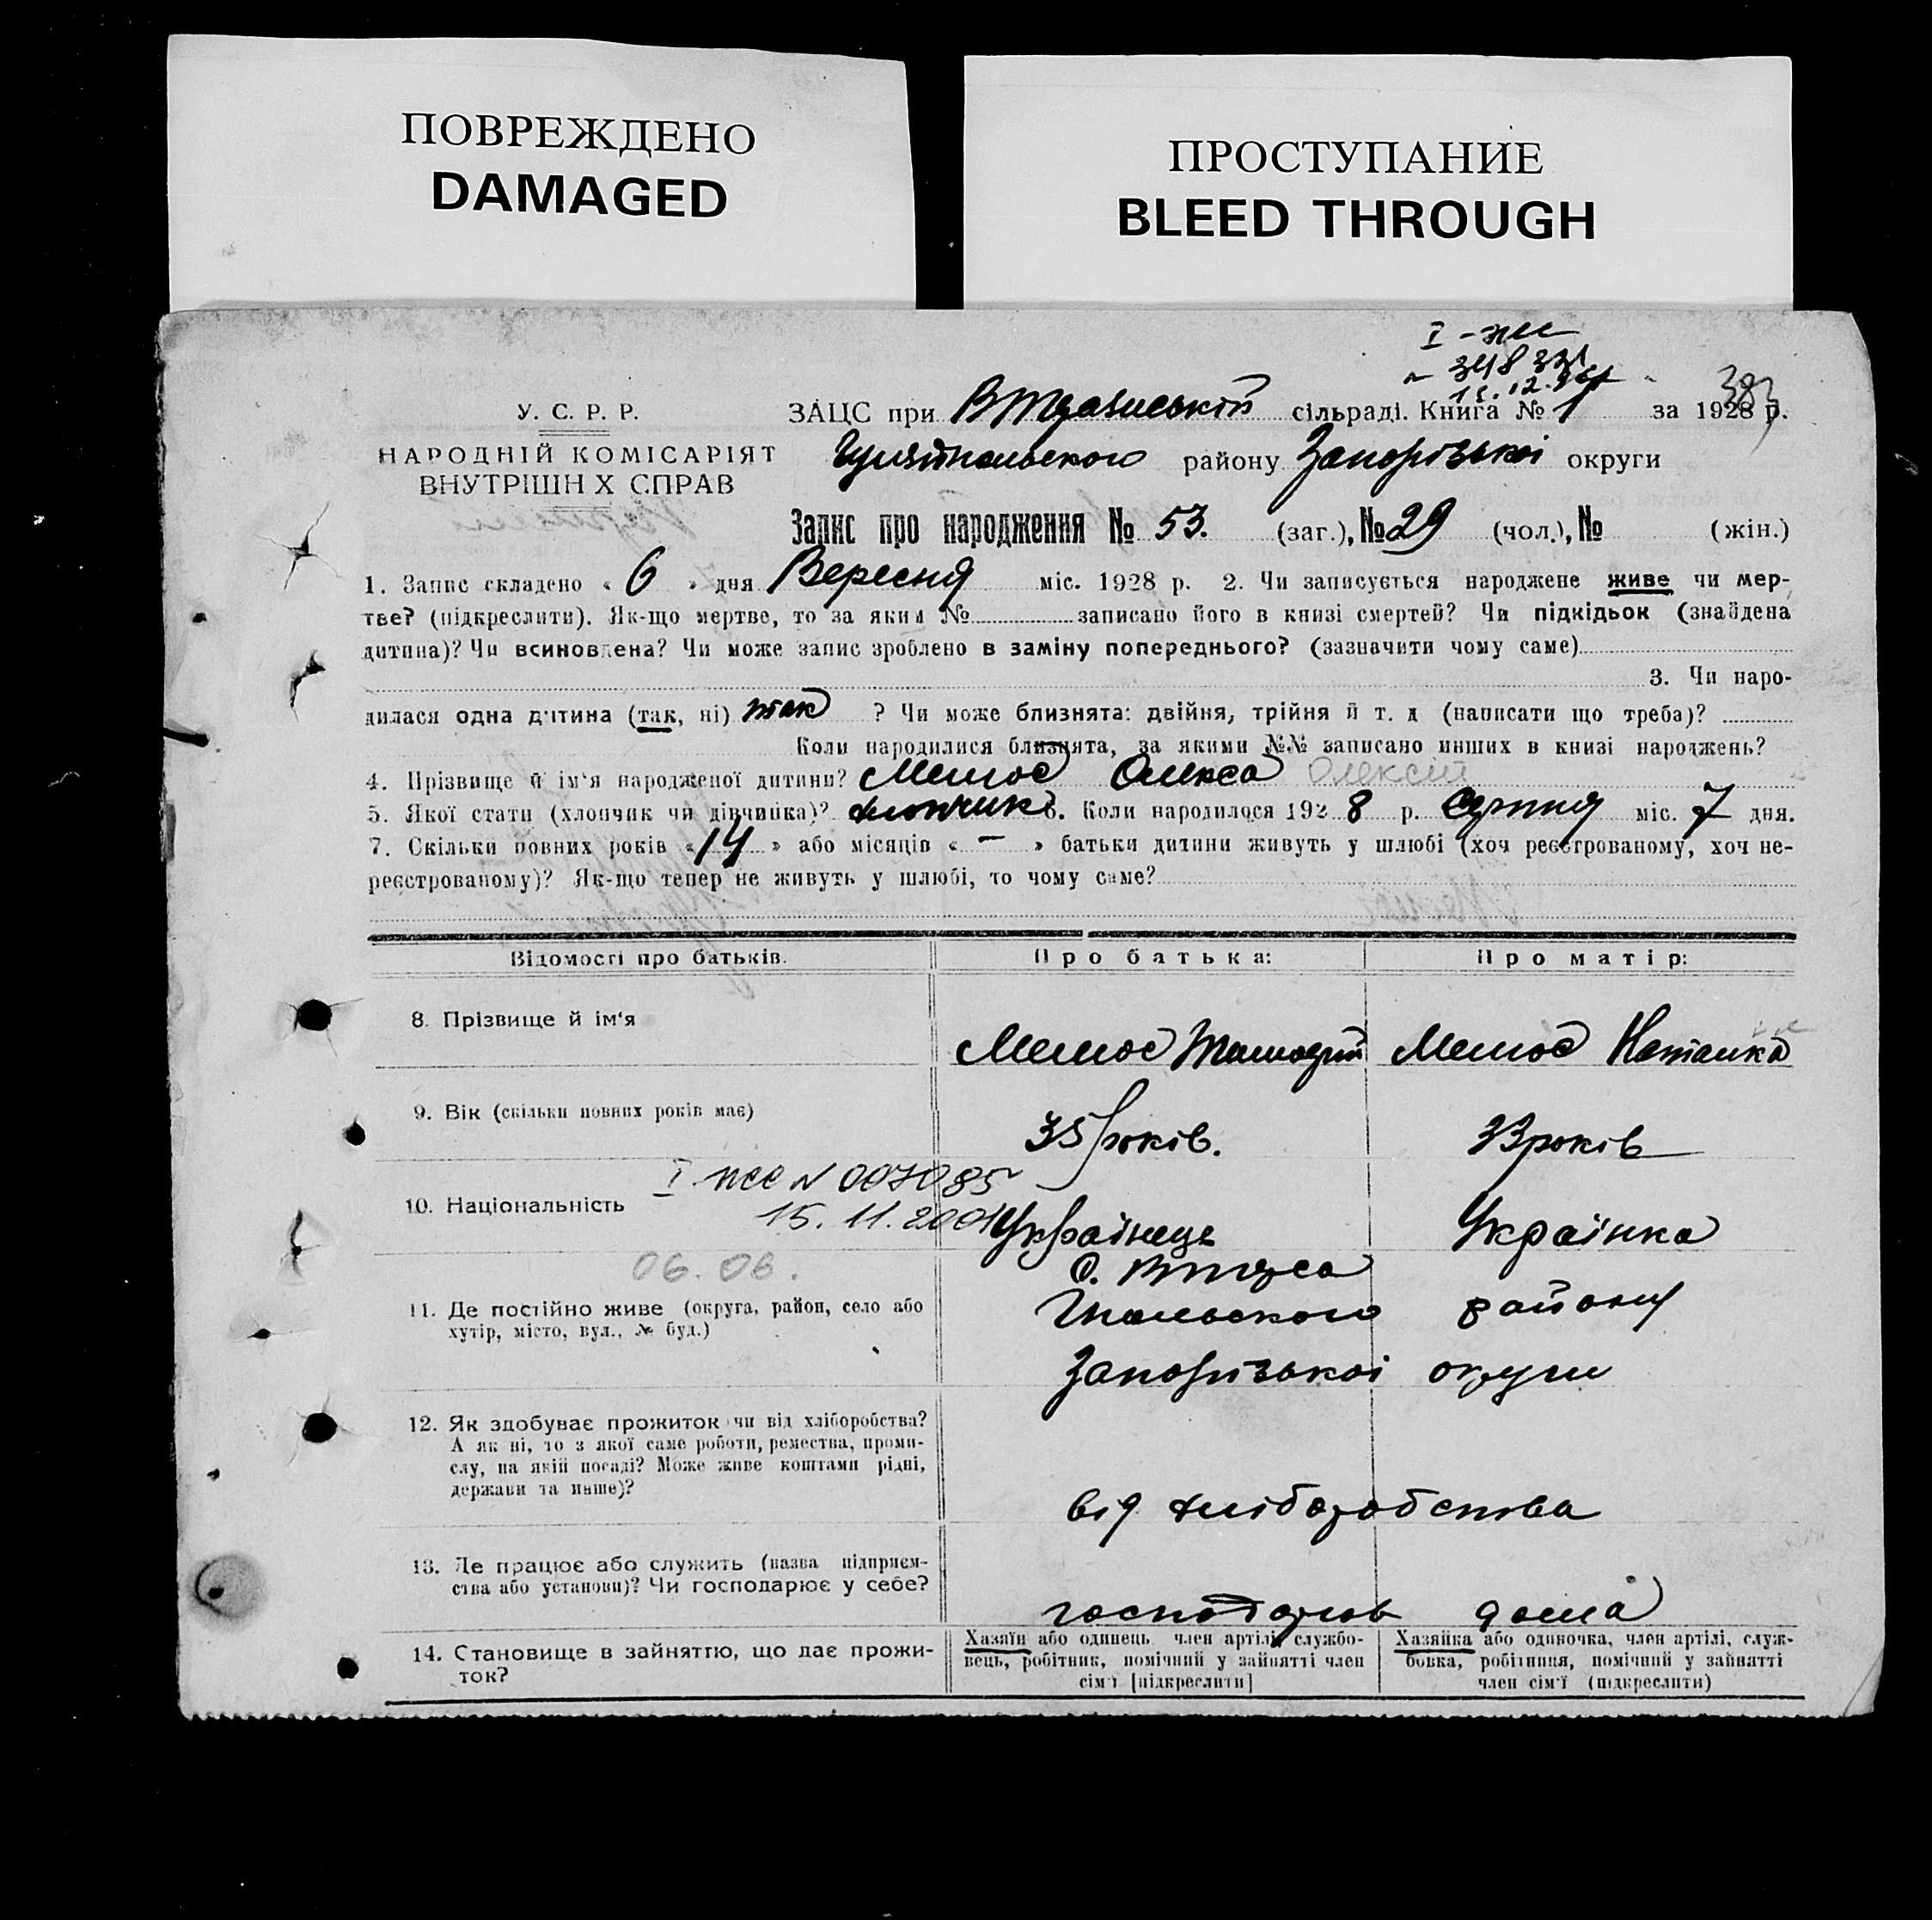 ПОВРЕЖДЕНО
DAMAGED
ПРОСТУПАНИЕ
BLEED THROUGH
383
У. С. Р. Р.
НАРОДНІЙ КОМІСАРІЯТ
ВНУТРІШН Х СПРАВ
ЗАЦС при сільраді. Книга № 1 за 1928 р.
району Запорізької округи
Запис про народження № 53. (заг.), № 29 (чол.), № (жін.)
1. Запис складено « 6 » дня Вересня міс. 1928 р. 2. Чи записується народжене живе чи мер-
тве? (підкреслити). Як-що мертве, то за яким № записано його в книзі смертей? Чи підкідьок (знайдена
дитина)? Чи всиновлена? Чи може запис зроблено в заміну попереднього? (зазначити чому саме)
3. Чи наро-
дилася одна дитина (так, ні) так ? Чи може близнята: двійня, трійня й т. д (написати що треба)?
Коли народилися близнята, за якими №№ записано инших в книзі народжень?
4. Прізвище й ім'я народженої дитини? Олекса Олексій
5. Якої стати (хлопчик чи дівчинка)? хлопчик 6. Коли народилося 1928 р. Серпня міс. 7 дня.
7. Скільки повних років « 14 » або місяців « — » батьки дитини живуть у шлюбі (хоч реєстрованому, хоч не-
реєстрованому)? Як-що тепер не живуть у шлюбі, то чому саме?
Відомості про батьків. Про батька: Про матір:
8. Прізвище й ім'я
Наталка
9. Вік (скільки повних років має) 35 років. 33 років
I № 007085
10. Національність 15. 11. 2001 Українець Українка
06. 06.
11. Де постійно живе (округа, район, село або
хутір, місто, вул., № буд.)
району
Запорізькоі округи
12. Як здобуває прожиток чи від хліборобства?
А як ні, то з якої саме роботи, ремества, проми-
слу, на якій посаді? Може живе коштами рідні,
держави та инше)?
від хліборобства
13. Де працює або служить (назва підприєм-
ства або установи)? Чи господарює у себе?
дома
14. Становище в зайняттю, що дає прожи-
ток?
Хазяїн або одинець член артілі, службо-
вець, робітник, помічний у зайнятті член
сім'ї [підкреслити]
Хазяйка або одиночка, член артілі, служ-
бовка, робітниця, помічний у зайнятті
член сім'ї (підкреслити)